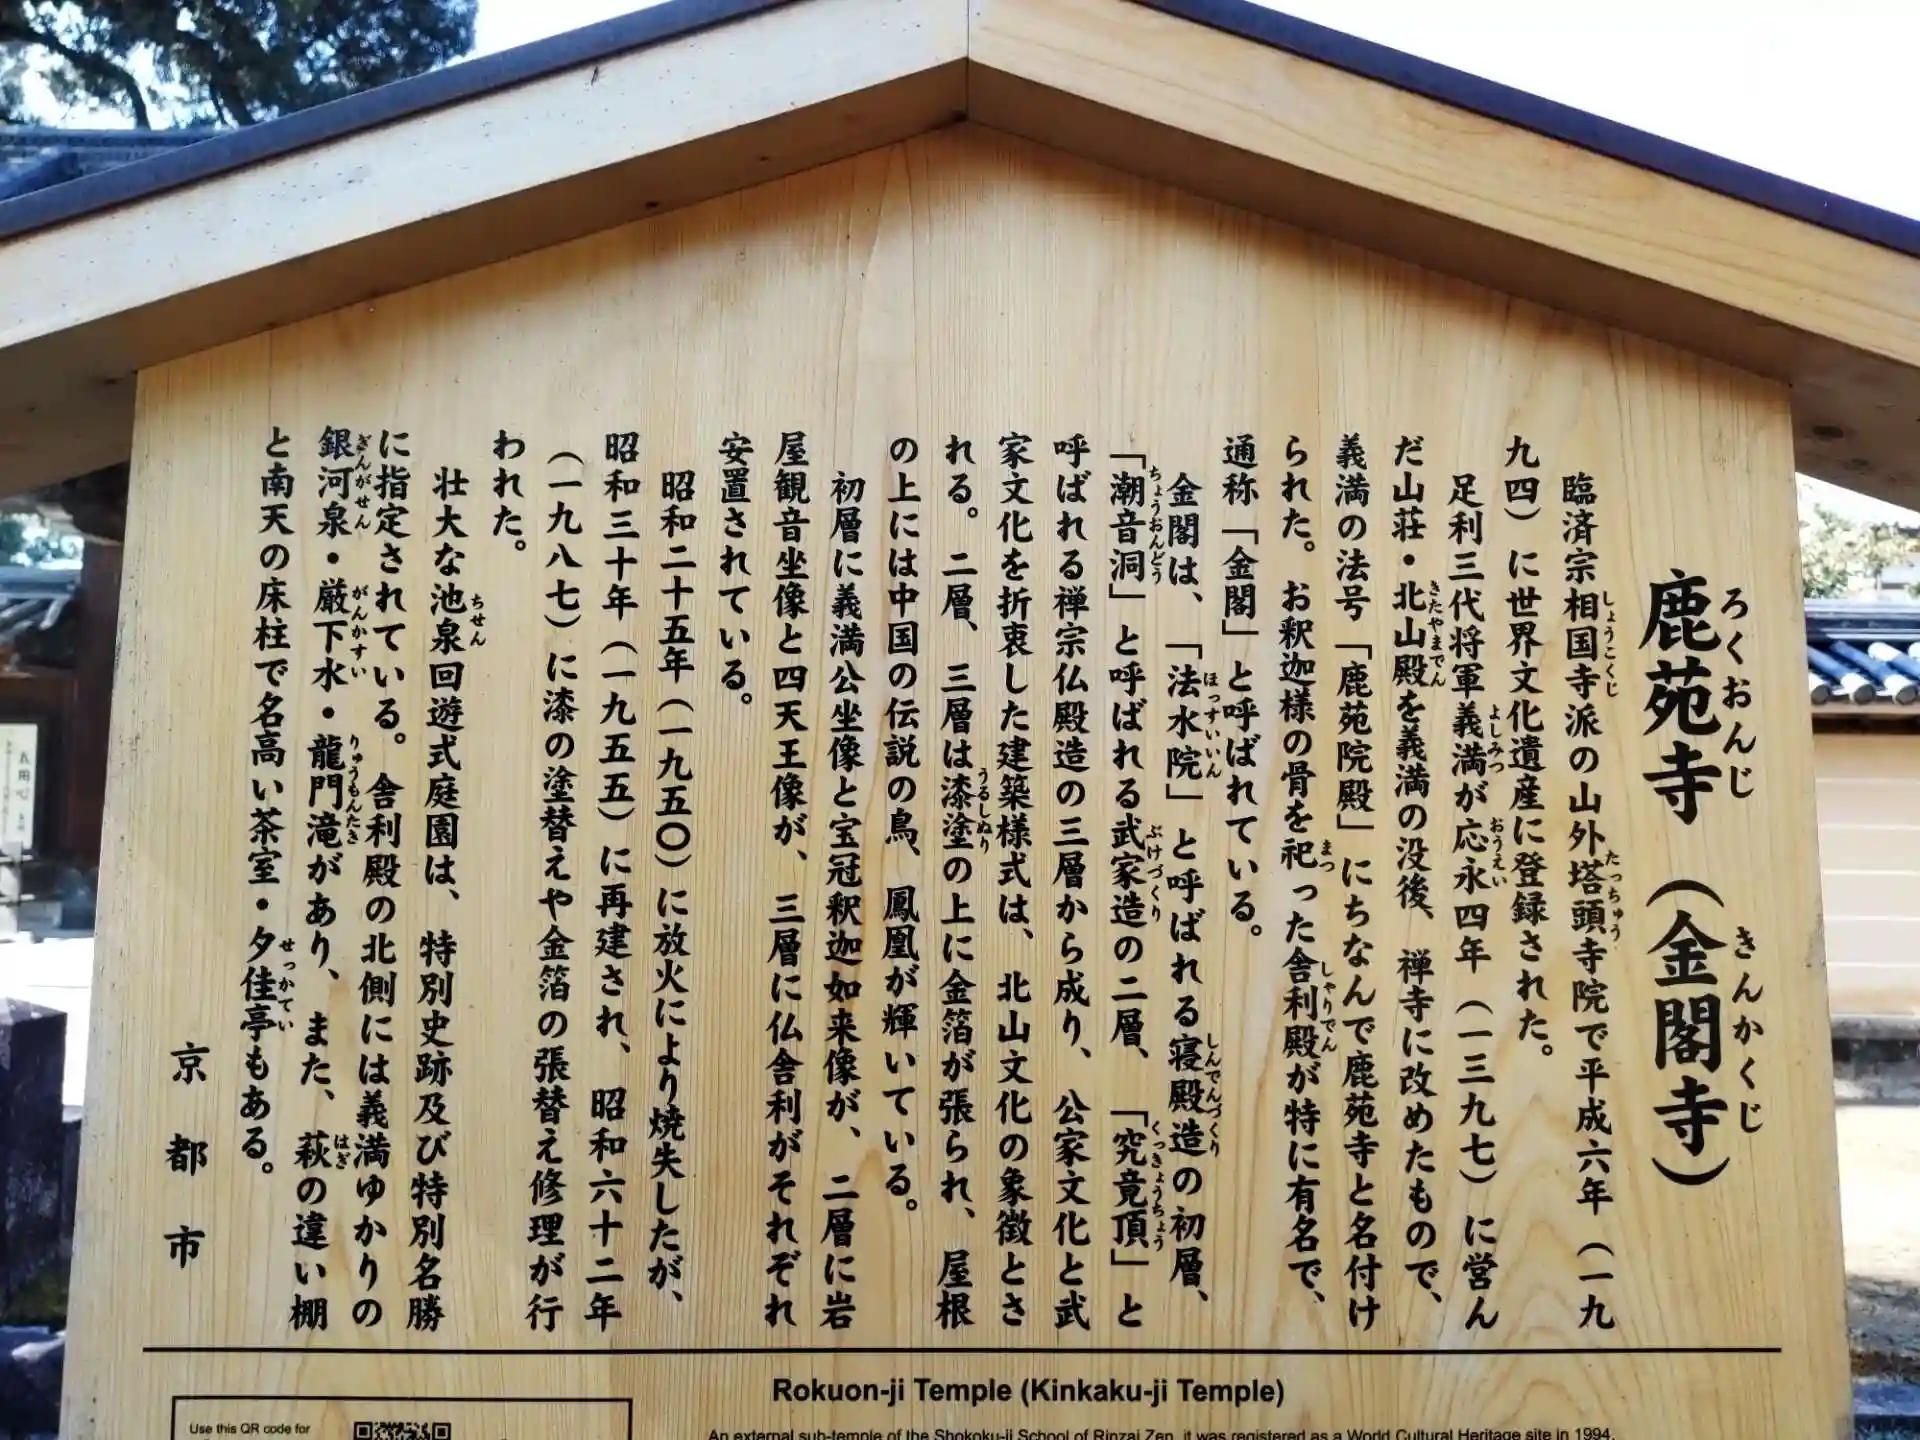 鹿苑寺（金閣寺）
ろくおんじ きんかくじ
臨済宗相国寺派の山外塔頭寺院で平成六年（一九
しょうこくじ たっちゅう
九四）に世界文化遺産に登録された。
足利三代将軍義満が応永四年（一三九七）に営ん
よしみつ おうえい
だ山荘・北山殿を義満の没後、禅寺に改めたもので、
きたやまでん
義満の法号「鹿苑院殿」にちなんで鹿苑寺と名付け
られた。お釈迦様の骨を祀った舎利殿が特に有名で、
まつ しゃりでん
通称「金閣」と呼ばれている。
金閣は、「法水院」と呼ばれる寝殿造の初層、
ほっすいいん しんでんづくり
「潮音洞」と呼ばれる武家造の二層、「究竟頂」と
ちょうおんどう ぶけづくり くっきょうちょう
呼ばれる禅宗仏殿造の三層から成り、公家文化と武
家文化を折衷した建築様式は、北山文化の象徴とさ
れる。二層、三層は漆塗の上に金箔が張られ、屋根
うるしぬり
の上には中国の伝説の鳥、鳳凰が輝いている。
初層に義満公坐像と宝冠釈迦如来像が、二層に岩
屋観音坐像と四天王像が、三層に仏舎利がそれぞれ
安置されている。
昭和二十五年（一九五〇）に放火により焼失したが、
昭和三十年（一九五五）に再建され、昭和六十二年
（一九八七）に漆の塗替えや金箔の張替え修理が行
われた。
壮大な池泉回遊式庭園は、特別史跡及び特別名勝
ちせん
に指定されている。舎利殿の北側には義満ゆかりの
銀河泉・厳下水・龍門滝があり、また、萩の違い棚
ぎんがせん がんかすい りゅうもんたき はぎ
と南天の床柱で名高い茶室・夕佳亭もある。
せっかてい
京都市
Rokuon-ji Temple (Kinkaku-ji Temple)
Use this QR code for
An external sub-temple of the Shokoku-ji School of Rinzai Zen, it was registered as a World Cultural Heritage site in 1994.